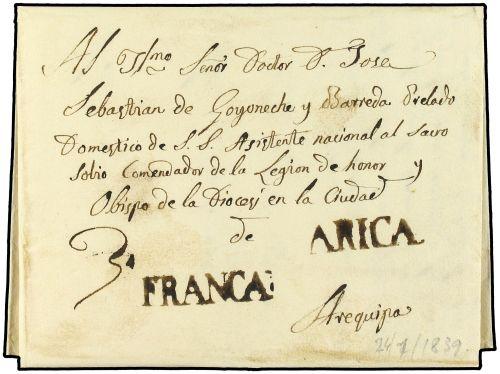 Al Ylmo Señor Doctor D. Jose
Sebastian de Goyoneche y Barreda Prelado
Domestico de S. S. Asistente nacional al sacro
Solio Comendador de la Legion de honor y
Obispo de la Diocesi en la Ciudad
de
ARICA
FRANCA
Arequipa
24/1/1839